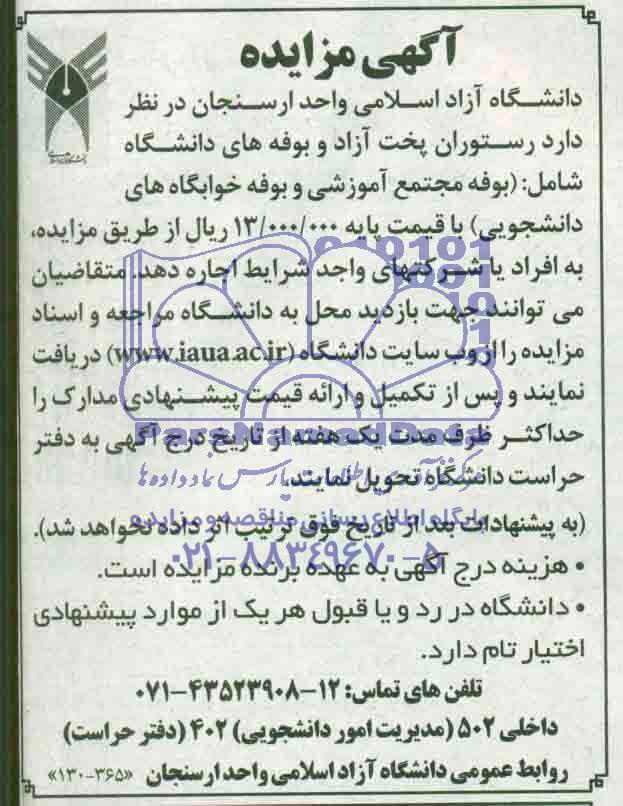 آگهی مزایده
دانشگاه آزاد اسلامی واحد ارسنجان در نظر
دارد رستوران پخت آزاد و بوفه های دانشگاه
شامل: (بوفه مجتمع آموزشی و بوفه خوابگاه های
دانشجویی) با قیمت پایه ۱۳/۰۰۰/۰۰۰ ریال از طریق مزایده،
به افراد یا شرکتهای واجد شرایط اجاره دهد. متقاضیان
می توانند جهت بازدید محل به دانشگاه مراجعه و اسناد
مزایده را از وب سایت دانشگاه (www.iaua.ac.ir) دریافت
نمایند و پس از تکمیل و ارائه قیمت پیشنهادی مدارک را
حداکثر ظرف مدت یک هفته از تاریخ درج آگهی به دفتر
ParsNamadData
حراست دانشگاه تحویل نمایند.
مرکز فرآوری اطلاعات پارس نماد داده ها
پایگاه اطلاع رسانی مناقصه و مزایده
(به پیشنهادات بعد از تاریخ فوق ترتیب اثر داده نخواهد شد).
۰۲۱-۸۸۳۴۹۶۷۰-۵
• هزینه درج آگهی به عهده برنده مزایده است.
• دانشگاه در رد و یا قبول هر یک از موارد پیشنهادی
اختیار تام دارد.
تلفن های تماس: ۱۲-۴۳۵۲۳۹۰۸-۰۷۱
داخلی ۵۰۲ (مدیریت امور دانشجویی) ۴۰۲ (دفتر حراست)
روابط عمومی دانشگاه آزاد اسلامی واحد ارسنجان «۳۶۵-۱۳۰»